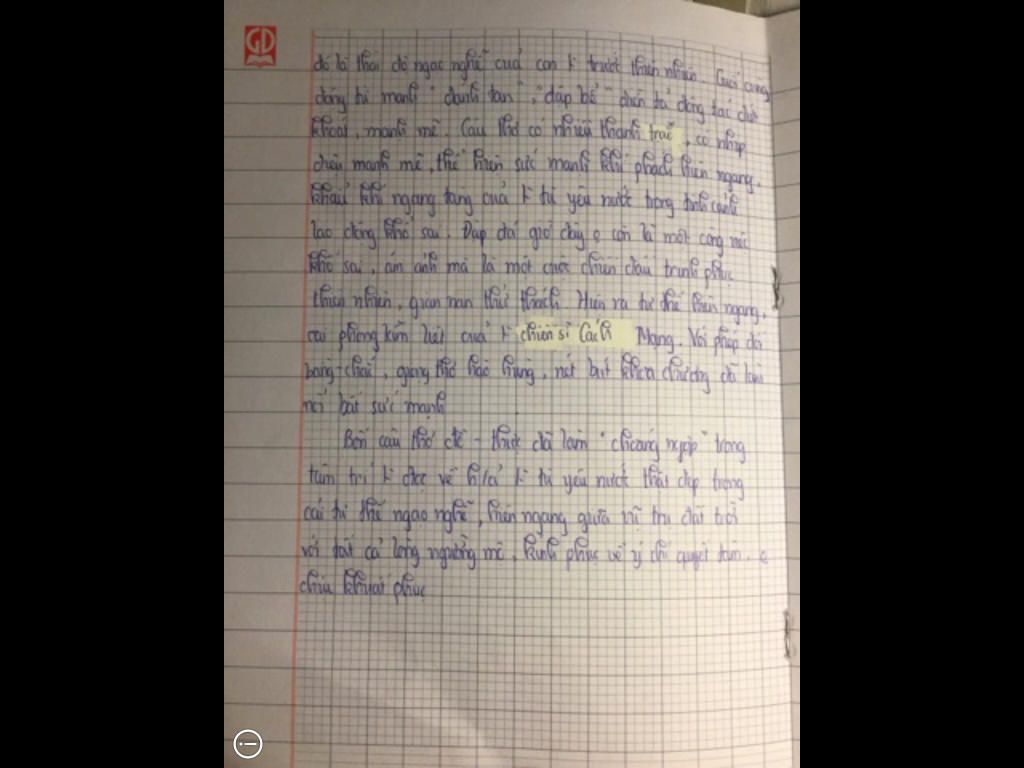 GD
đó là thái độ ngạo nghễ của con k trước thiên nhiên. Cuối cùng
động từ mạnh "đánh tan", "đập bể" diễn tả động tác dứt
khoát, mạnh mẽ. Câu thơ có nhiều thanh trắc, có nhịp
điệu mạnh mẽ, thể hiện sức mạnh khí phách hiên ngang.
khẩu khí ngang tàng của k tù yêu nước trong tình cảnh
lao động khổ sai. Đập đá giờ đây o còn là một công việc
khổ sai, ám ảnh mà là một cuộc chiến đấu trinh phục
thiên nhiên, gian nan thử thách. Hiện ra tư thế hiên ngang,
oai phong lẫm liệt của k chiến sĩ Cách Mạng. Với phép đối
băng - chắc, giọng thơ hào hùng, nét bút khoa trương đã làm
nổi bật sức mạnh
Bốn câu thơ đề - thực đã làm "choáng ngợp" trong
tâm trí k đọc về h/ả k tù yêu nước thật đẹp trong
cái tư thế ngạo nghễ, hiên ngang giữa vũ trụ đất trời
với tất cả lòng ngưỡng mộ, kính phục về ý chí quyết tâm. o
chịu khuất phục